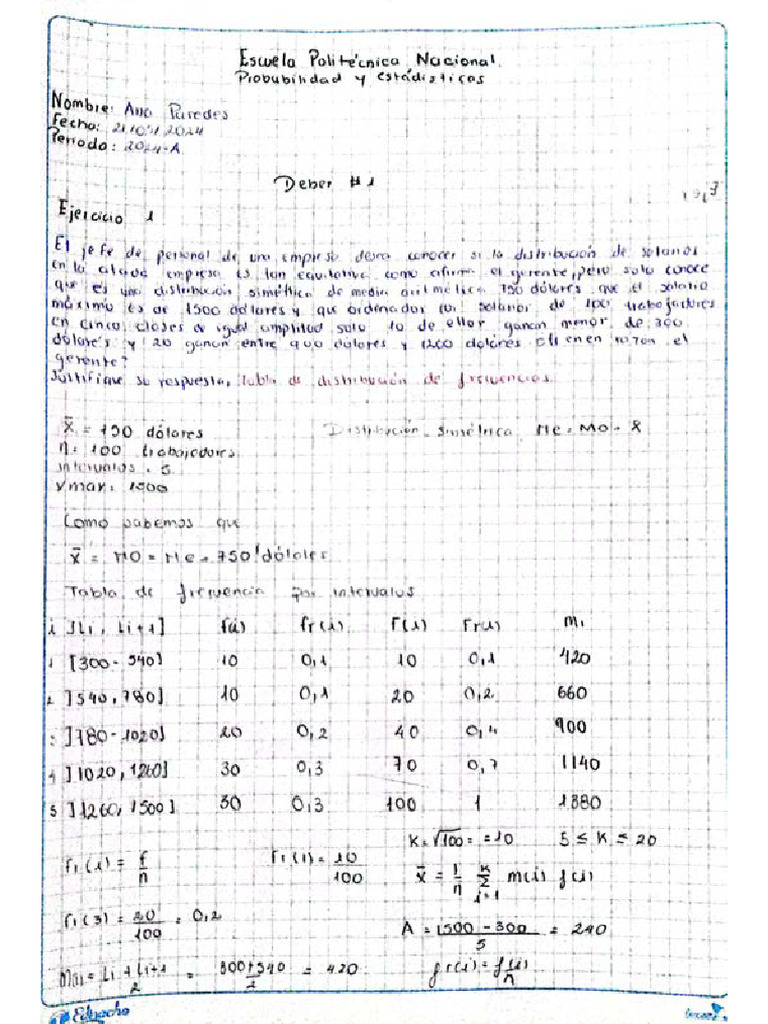 Escuela Politécnica Nacional.
Probabilidad y estádisticas
Nombre: Ana Paredes
Fecha: 21/05/2024
Periodo: 2024-A
Deber #1
Ejercicio 1
El jefe de personal de una empresa desea conocer si la distribución de salarios
en la citada empresa es tan equitativa como afirma el gerente, pero solo conoce
que es una distribución simétrica de media aritmética 750 dólares, que el salario
máximo es de 1500 dólares y que ordenados los salarios de 100 trabajadores
en cinco clases de igual amplitud solo 10 de ellos ganan menos de 300
dólares y 20 ganan entre 900 dólares y 1200 dólares el
gerente?
Justifique su respuesta, tabla de distribución de frecuencias.
x̄ = 750 dólares
Distribución simétrica Me = Mo = x̄
n = 100 trabajadores
intervalos = 5
Vmax: 1500
Como sabemos que
x̄ = MO = Me = 750 dólares
Tabla de frecuencia por intervalos
i ]Li, Li+1] f(i) fr(i) F(i) Fr(i) Mi
1 [300-540] 10 0,1 10 0,1 420
2 ]540, 780] 10 0,1 20 0,2 660
3 ]780-1020] 20 0,2 40 0,4 900
4 ]1020, 1260] 30 0,3 70 0,7 1140
5 ]1260, 1500] 30 0,3 100 1 1380
K = √100 = =10 5 ≤ K ≤ 20
fr(i) = f/n fr(1) = 10/100 x̄ = 1/n Σ m(i) f(i)
K
i=1
fr(3) = 20/100 = 0,2 A = 1500 - 300/5 = 240
Mi = Li + Li+1/2 = 300+540/2 = 420 fr(i) = f(i)/n